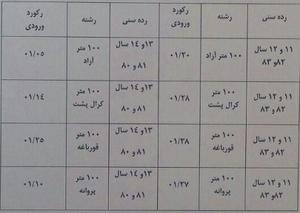 رده سنی رشته رکورد ورودی رده سنی رشته رکورد ورودی
۱۱ و ۱۲ سال ۸۲و ۸۳ ۱۰۰ متر آزاد ۰۱/۲۰ ۱۳و ۱۴ سال ۸۱و ۸۰ ۱۰۰ متر آزاد ۰۱/۰۵
۱۱ و ۱۲ سال ۸۲و ۸۳ ۱۰۰ متر کرال پشت ۰۱/۲۸ ۱۳و ۱۴ سال ۸۱و ۸۰ ۱۰۰ متر کرال پشت ۰۱/۱۴
۱۱ و ۱۲ سال ۸۲و ۸۳ ۱۰۰ متر قورباغه ۰۱/۳۸ ۱۳و ۱۴ سال ۸۱و ۸۰ ۱۰۰ متر قورباغه ۰۱/۲۵
۱۱ و ۱۲ سال ۸۲و ۸۳ ۱۰۰ متر پروانه ۰۱/۲۷ ۱۳و ۱۴ سال ۸۱و ۸۰ ۱۰۰ متر پروانه ۰۱/۱۰